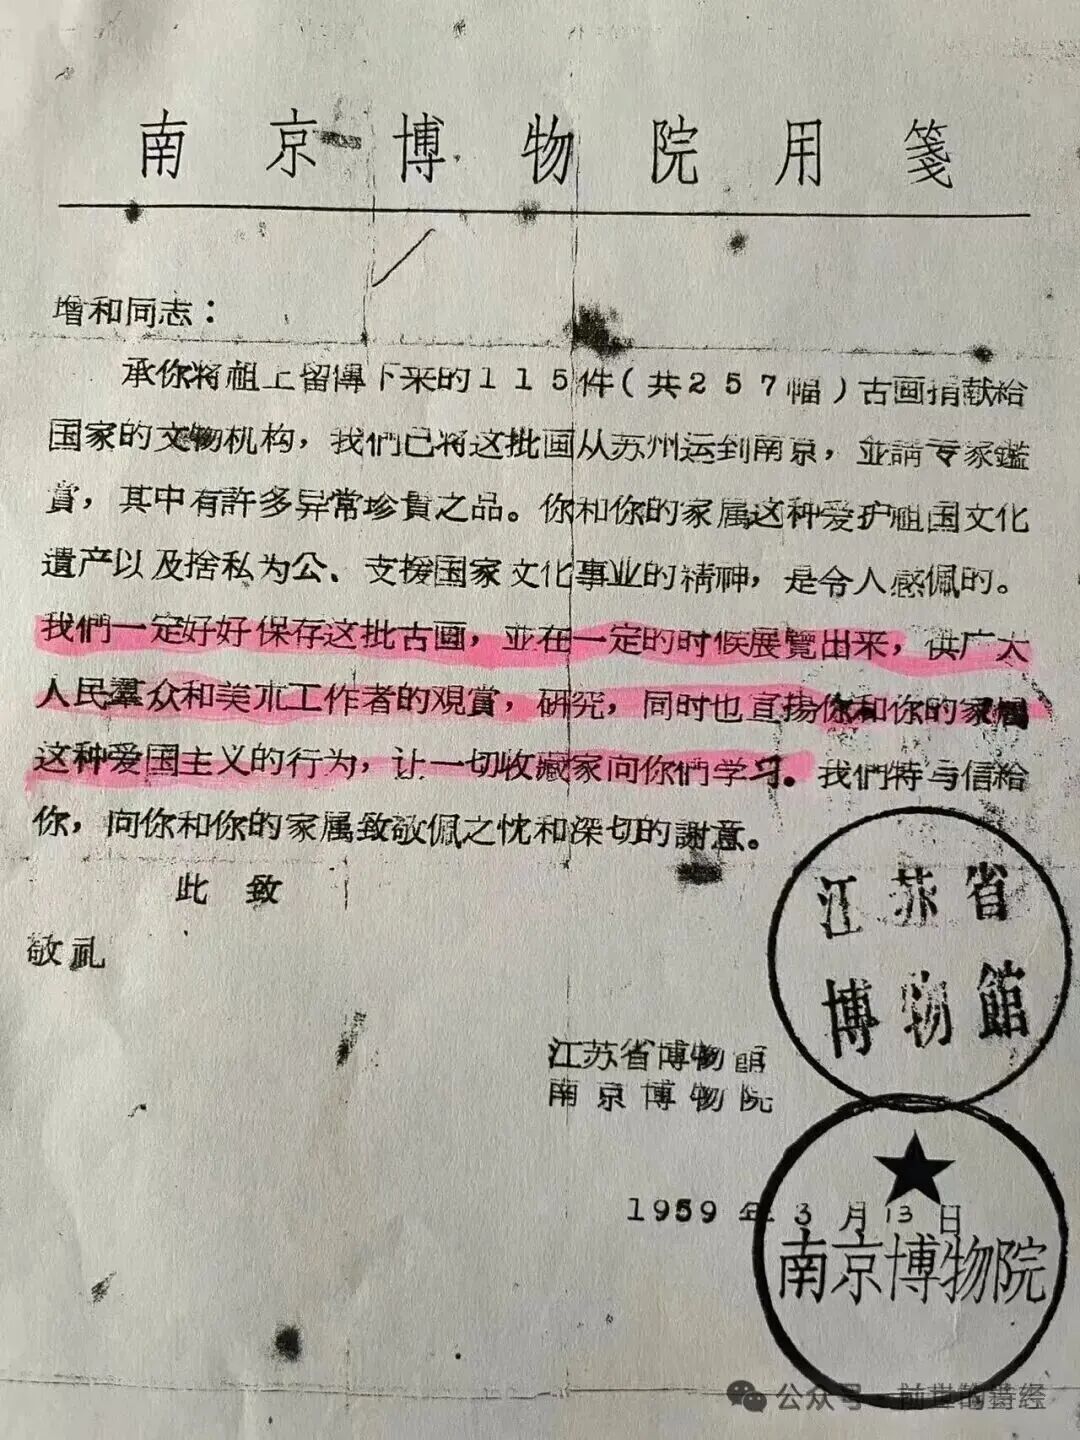 南京博物院用箋
增和同志：
承你将祖上留傳下来的115件（共257幅）古画捐献给
国家的文物机构，我們已将这批画从苏州运到南京，並請专家鑑
賞，其中有許多异常珍貴之品。你和你的家属这种爱护祖国文化
遺产以及捨私为公、支援国家文化事业的精神，是令人感佩的。
我們一定好好保存这批古画，並在一定的时候展覽出来，供广大
人民羣众和美朮工作者的观賞，研究，同时也宣揚你和你的家属
这种爱国主义的行为，让一切收藏家向你們学习。我們特写信给
你，向你和你的家属致敬佩之忱和深切的謝意。
此致
敬礼
江苏省
博物館
江苏省博物館
南京博物院
1959年3月13日
南京博物院
公众号·前世的诗经